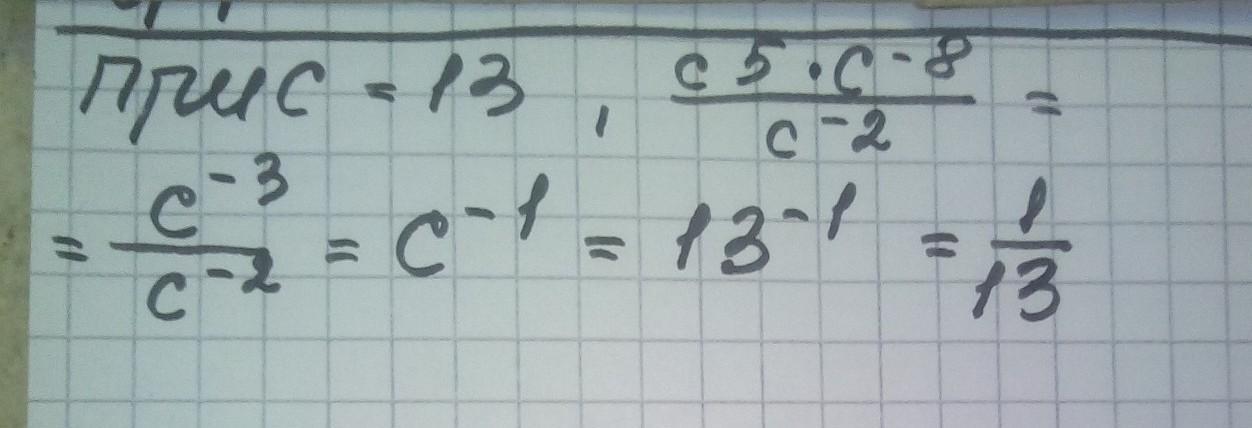 при c = 13, \frac{c^5 \cdot c^{-8}}{c^{-2}} =
= \frac{c^{-3}}{c^{-2}} = c^{-1} = 13^{-1} = \frac{1}{13}